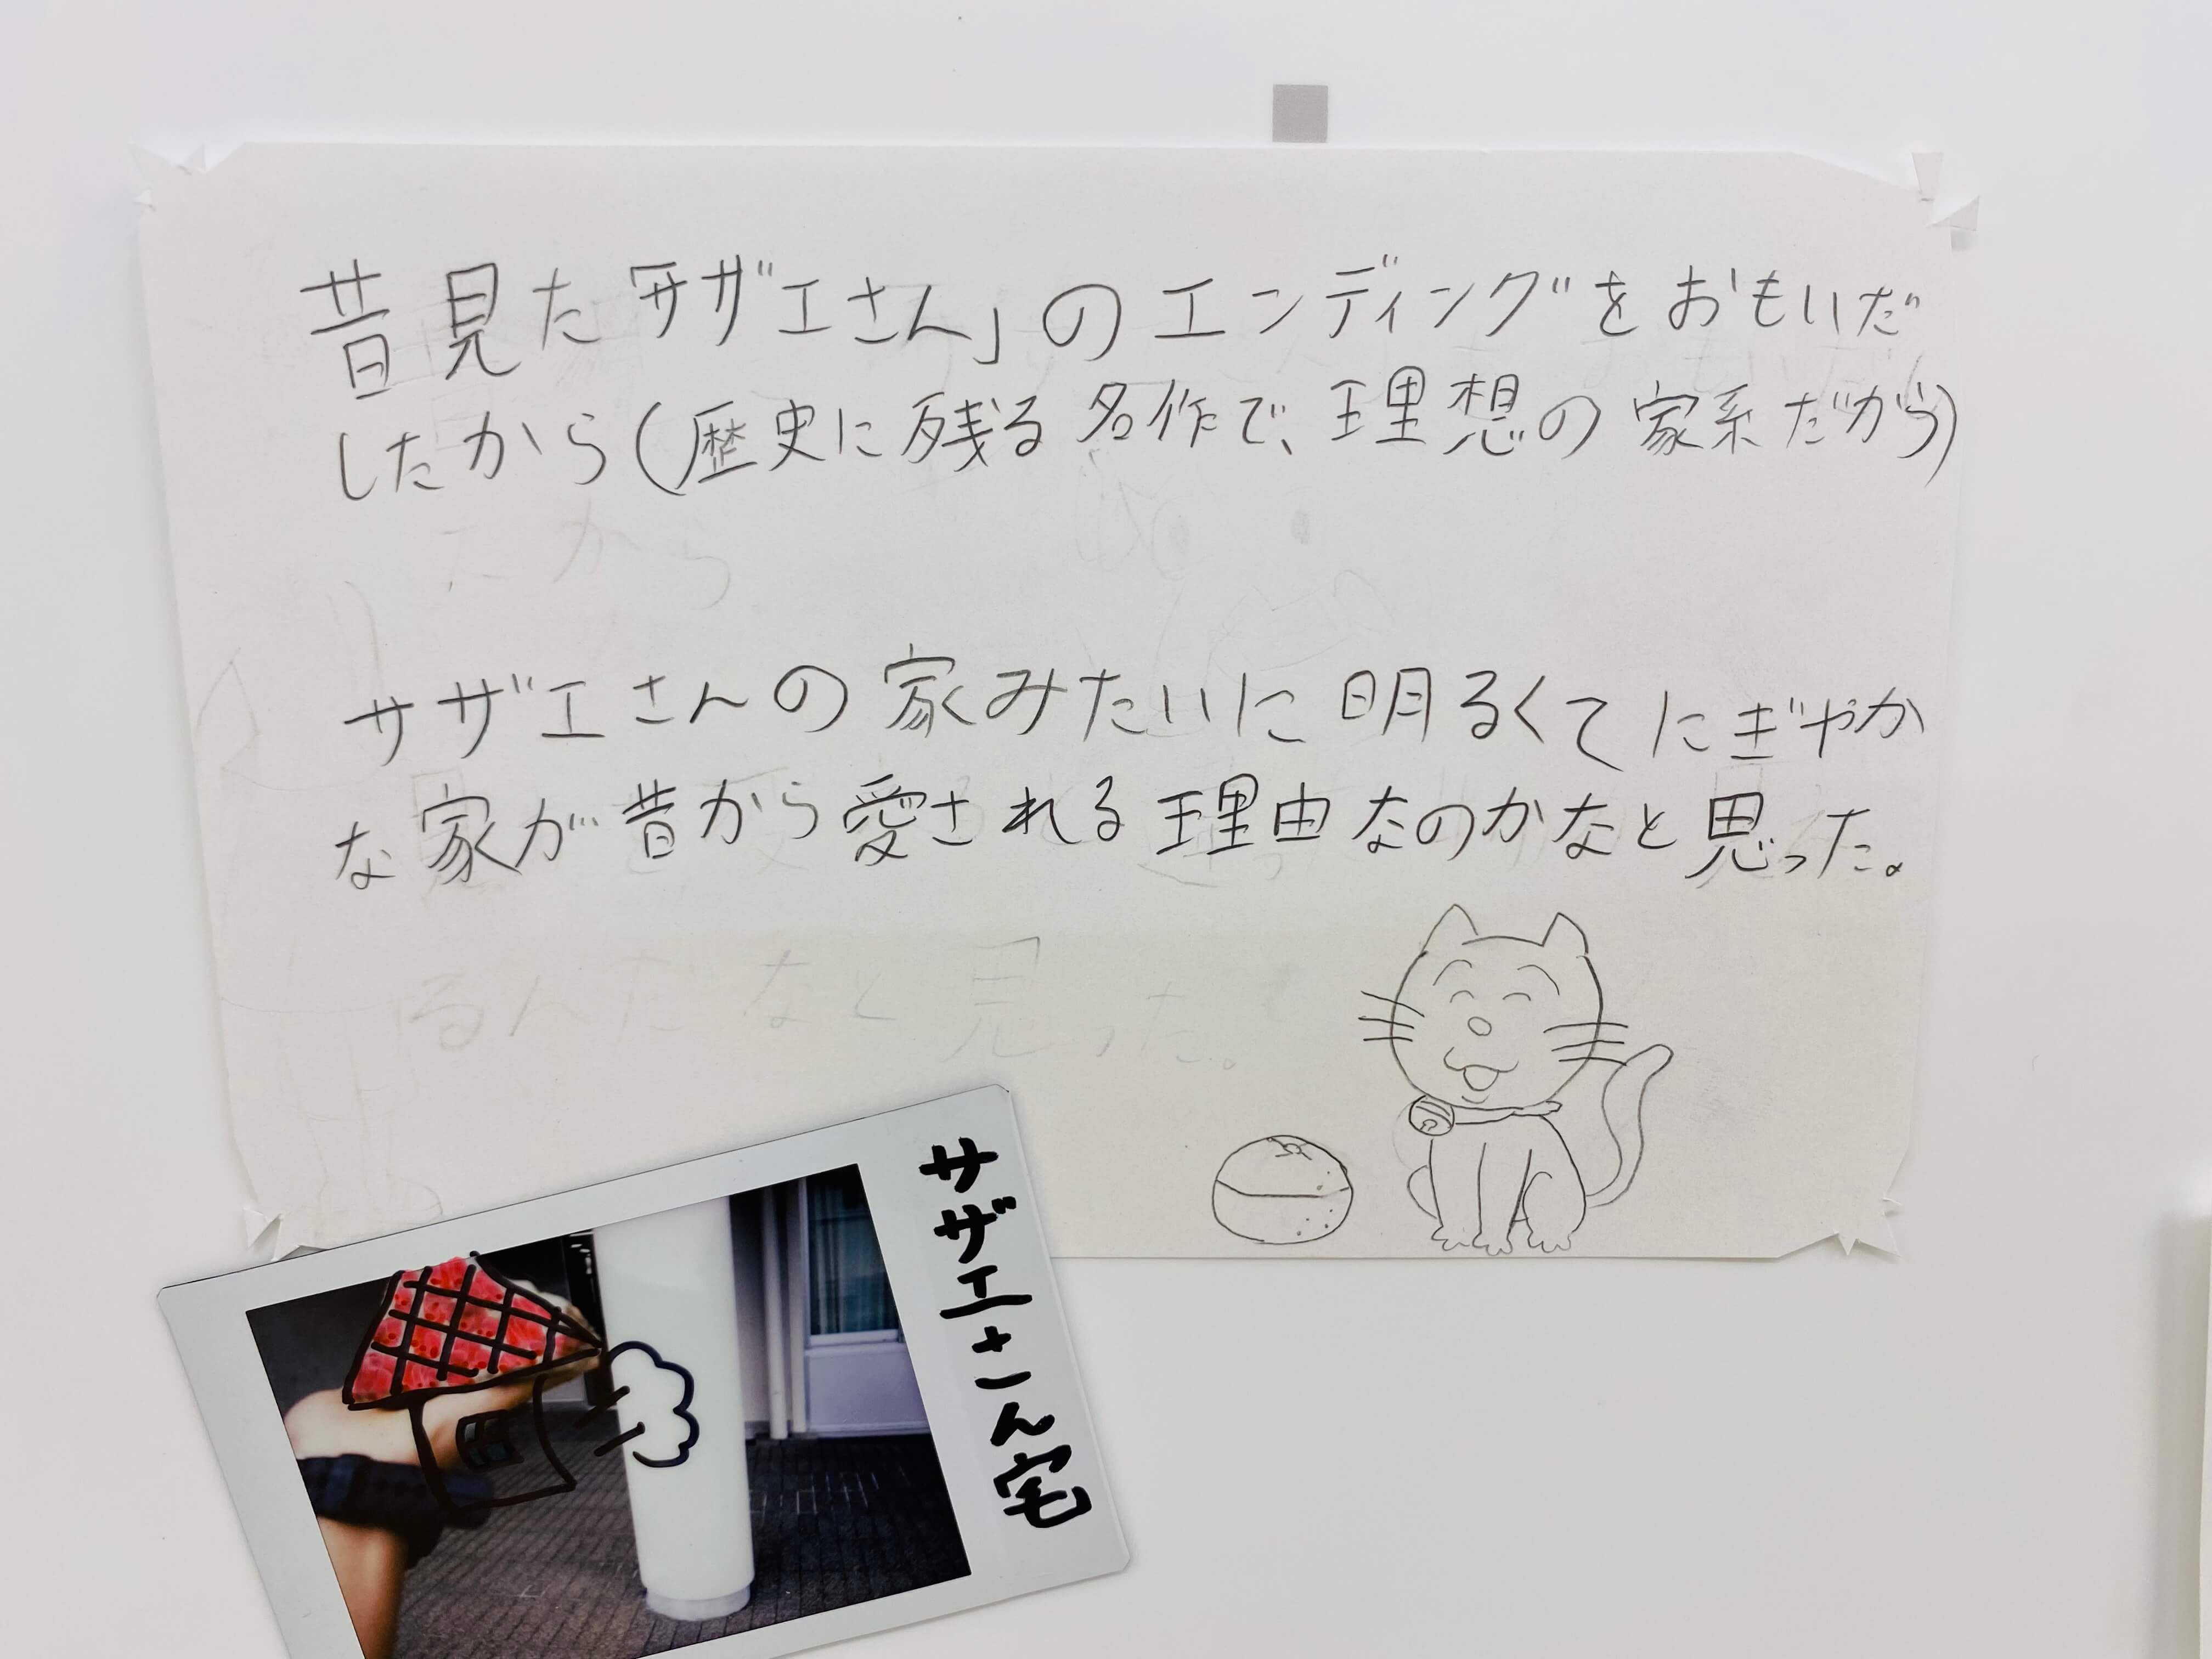 昔見た「サザエさん」のエンディングをおもいだ
したから(歴史に残る名作で、理想の家系だから)
サザエさんの家みたいに明るくてにぎやか
な家が昔から愛される理由なのかなと思った。
サザエさん宅